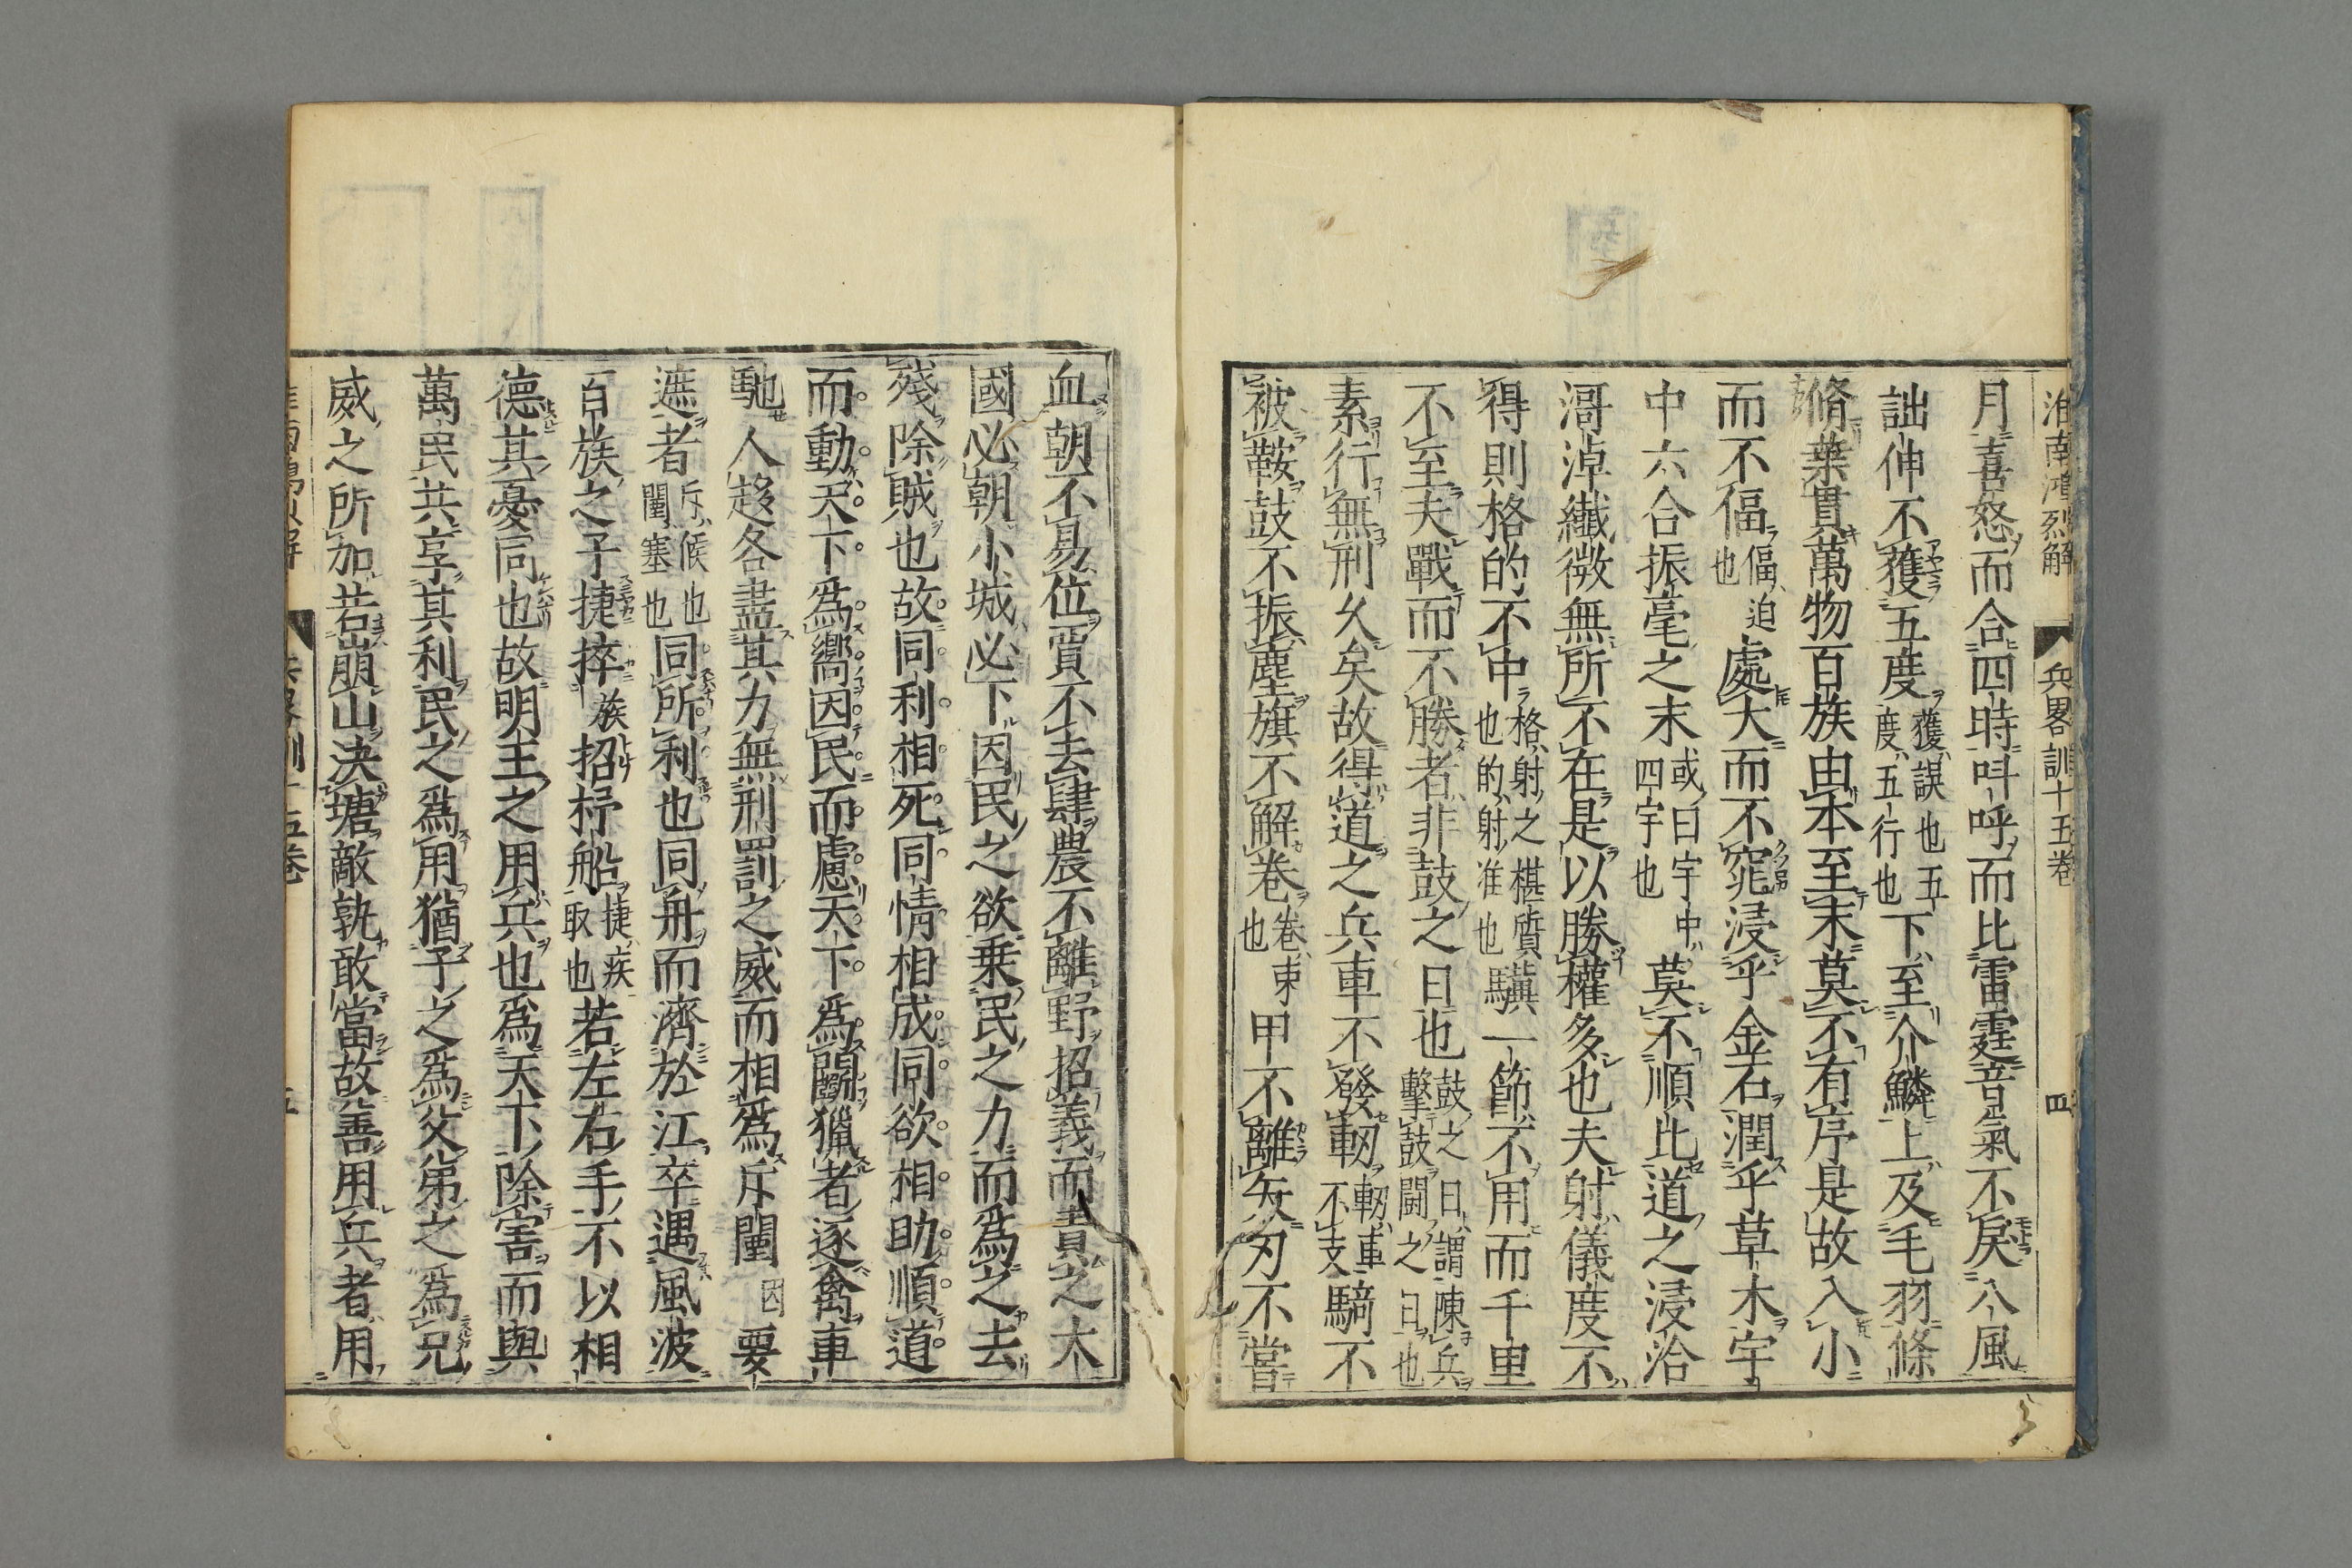 淮南鴻烈解 兵畧訓十五卷 四
月喜怒而合四時呌呼而比雷霆音氣不戾八風
詘伸不獲五度獲誤也五度五行也下至介鱗上及毛羽條
脩葉貫萬物百族由本至末莫不有序是故入小
而不偪偪迫也處大而不窕浸乎金石潤乎草木宇
中六合振毫之末或曰宇中四宇也莫不順比道之浸洽
滒淖纖微無所不在是以勝權多也夫射儀度不
得則格的不中格射之椹質也的射准也驥一節不用而千里
不至夫戰而不勝者非鼓之日也鼓之日謂陳兵擊鼓鬭之日也
素行無刑久矣故得道之兵車不發軔軔車不支騎不
被鞍鼓不振塵旗不解卷卷束也甲不離矢刃不嘗
血朝不易位賈不去肆農不離野招義而責之大
國必朝小城必下因民之欲乘民之力而爲之去
殘除賊也故同利相死同情相成同欲相助順道
而動天下爲嚮因民而慮天下爲鬭獵者逐禽車
馳人趍各盡其力無刑罰之威而相爲斥闉因要
遮者斥候也闉塞也同所利也同舟而濟於江卒遇風波
百族之子捷捽族招杼船捷疾取也若左右手不以相
德其憂同也故明王之用兵也爲天下除害而與
萬民共享其利民之爲用猶子之爲父弟之爲兄
威之所加若崩山決塘敵孰敢當故善用兵者用